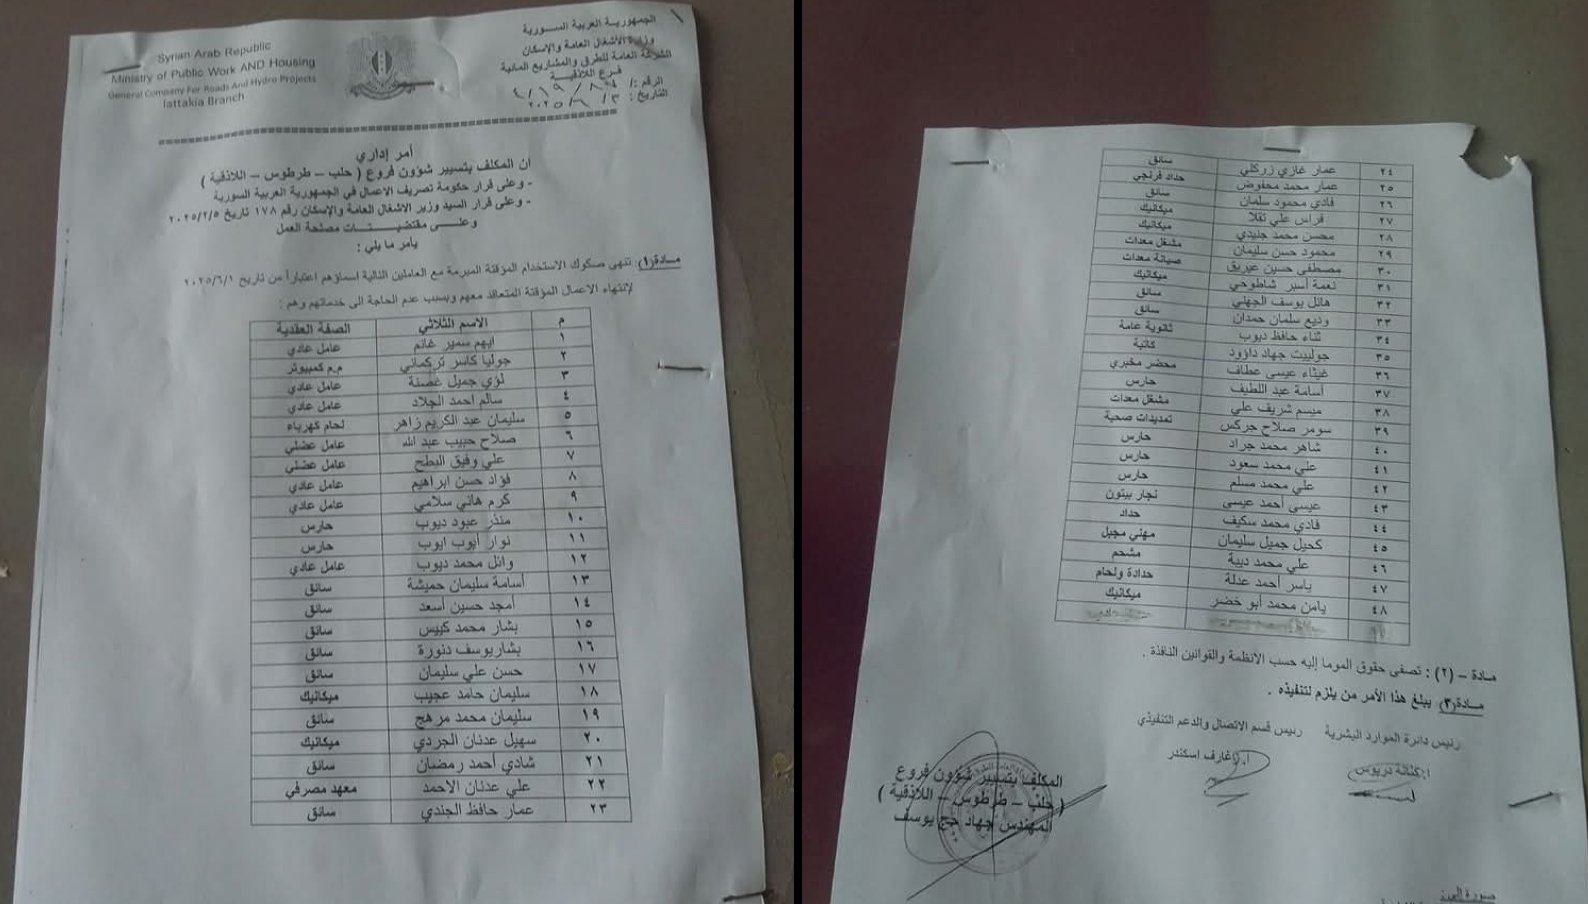 Syrian Arab Republic
Ministry of Public Work AND Housing
General Company For Roads And Hydro Projects
lattakia Branch
الجمهوريـة العربية الســورية
وزارة الأشغال العامة والإسكان
الشركة العامة للطرق والمشاريع المائية
فـرع اللاذقيـــة
الرقم :
التاريخ : ٣ / ٦ / ٢٠٢٥
أمر إداري
ان المكلف بتسيير شؤون فروع ( حلب – طرطوس – اللاذقية )
- وعلى قرار حكومة تصريف الاعمال في الجمهورية العربية السورية
- وعلى قرار السيد وزير الاشغال العامة والإسكان رقم ١٧٨ تاريخ ٢٠٢٥/٢/٥
وعلـــى مقتضيـــــات مصلحة العمل
يأمر ما يلي :
مـــادة(١) تنهى صكوك الاستخدام المؤقتة المبرمة مع العاملين التالية اسماؤهم اعتباراً من تاريخ ٢٠٢٥/٦/١
لإنتهاء الاعمال المؤقتة المتعاقد معهم وبسبب عدم الحاجة الى خدماتهم وهم :
م الاسم الثلاثي الصفة العقدية
١ ايهم سمير غانم عامل عادي
٢ جوليا كاسر تركماني م.م كمبيوتر
٣ لؤي جميل غصنة عامل عادي
٤ سالم احمد الجلاد عامل عادي
٥ سليمان عبد الكريم زاهر لحام كهرباء
٦ صلاح حبيب عبد الله عامل عضلي
٧ علي وفيق البطح عامل عضلي
٨ فؤاد حسن ابراهيم عامل عادي
٩ كرم هاني سلامي عامل عادي
١٠ منذر عبود ديوب حارس
١١ نوار أيوب ايوب حارس
١٢ وائل محمد ديوب عامل عادي
١٣ أسامة سليمان حميشة سائق
١٤ امجد حسين أسعد سائق
١٥ بشار محمد كبيس سائق
١٦ بشاريوسف دنورة سائق
١٧ حسن علي سليمان سائق
١٨ سليمان حامد عجيب ميكانيك
١٩ سليمان محمد مرهج سائق
٢٠ سهيل عدنان الجردي ميكانيك
٢١ شادي أحمد رمضان سائق
٢٢ علي عدنان الاحمد معهد مصرفي
٢٣ عمار حافظ الجندي سائق
٢٤ عمار غازي زركلي سائق
٢٥ عمار محمد محفوض حداد فرنجي
٢٦ فادي محمود سلمان سائق
٢٧ فراس علي تقلا ميكانيك
٢٨ محسن محمد جنيدي ميكانيك
٢٩ محمود حسن سليمان مشغل معدات
٣٠ مصطفى حسين عيريق صيانة معدات
٣١ نعمة أسبر شاطوحي ميكانيك
٣٢ هائل يوسف الجهني سائق
٣٣ وديع سلمان حمدان سائق
٣٤ ثناء حافظ ديوب ثانوية عامة
٣٥ جولييت جهاد داوود كاتبة
٣٦ غيثاء عيسى عطاف محضر مخبري
٣٧ أسامة عبد اللطيف حارس
٣٨ ميسم شريف علي مشغل معدات
٣٩ سومر صلاح جركس تمديدات صحية
٤٠ شاهر محمد جراد حارس
٤١ علي محمد سعود حارس
٤٢ علي محمد مسلم حارس
٤٣ عيسى أحمد عيسى نجار بيتون
٤٤ فادي محمد سكيف حداد
٤٥ كحيل جميل سليمان مهني مجبل
٤٦ علي محمد ديبة مشحم
٤٧ ياسر أحمد عدلة حدادة ولحام
٤٨ يامن محمد أبو خضر ميكانيك
مـادة – (٢) : تصفى حقوق الموما إليه حسب الانظمة والقوانين النافذة .
مـــادة(٣) يبلغ هذا الأمر من يلزم لتنفيذه .
رئيس دائرة الموارد البشرية رئيس قسم الاتصال والدعم التنفيذي
أ.كنانة دريوس عارف اسكندر
المكلف بتسيير شؤون فروع
( حلب – طرطوس – اللاذقية )
المهندس جهاد حج يوسف
صورة إلى: